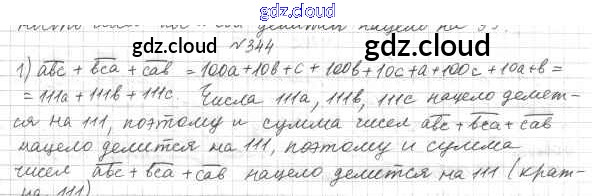 gdz.cloud
числа abc и cba делится нацело на 99.
gdz.cloud №344 gdz.cloud
1) abc + bca + cab = 100a+10b+c + 100b+10c+a+100c+10a+b=
= 111a + 111b + 111c. Числа 111a, 111b, 111c нацело делит-
ся на 111, поэтому и сумма чисел abc + bca + cab
нацело делится на 111, поэтому и сумма
чисел abc + bca + cab нацело делится на 111 (крат-
на 111)
gdz.cloud gdz.cloud